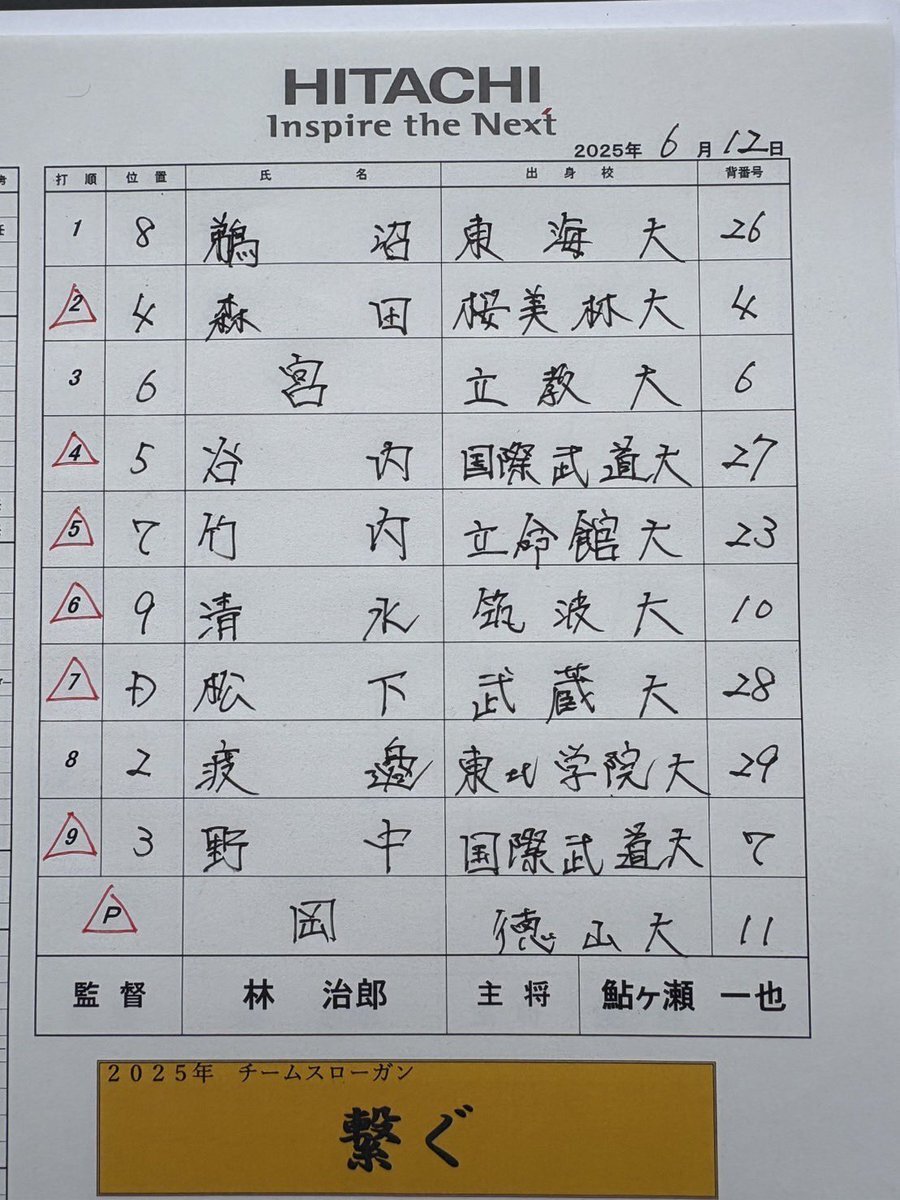 HITACHI
Inspire the Next
2025年 6月12日
打順 位置 氏名 出身校 背番号
1 8 鵜沼 東海大 26
2 4 森田 桜美林大 4
3 6 宮 立教大 6
4 5 谷内 国際武道大 27
5 7 竹内 立命館大 23
6 9 清水 筑波大 10
7 D 松下 武蔵大 28
8 2 渡邉 東北学院大 29
9 3 野中 国際武道大 7
P 岡 徳山大 11
監督 林 治郎 主将 鮎ヶ瀬 一也
2025年 チームスローガン
繋ぐ